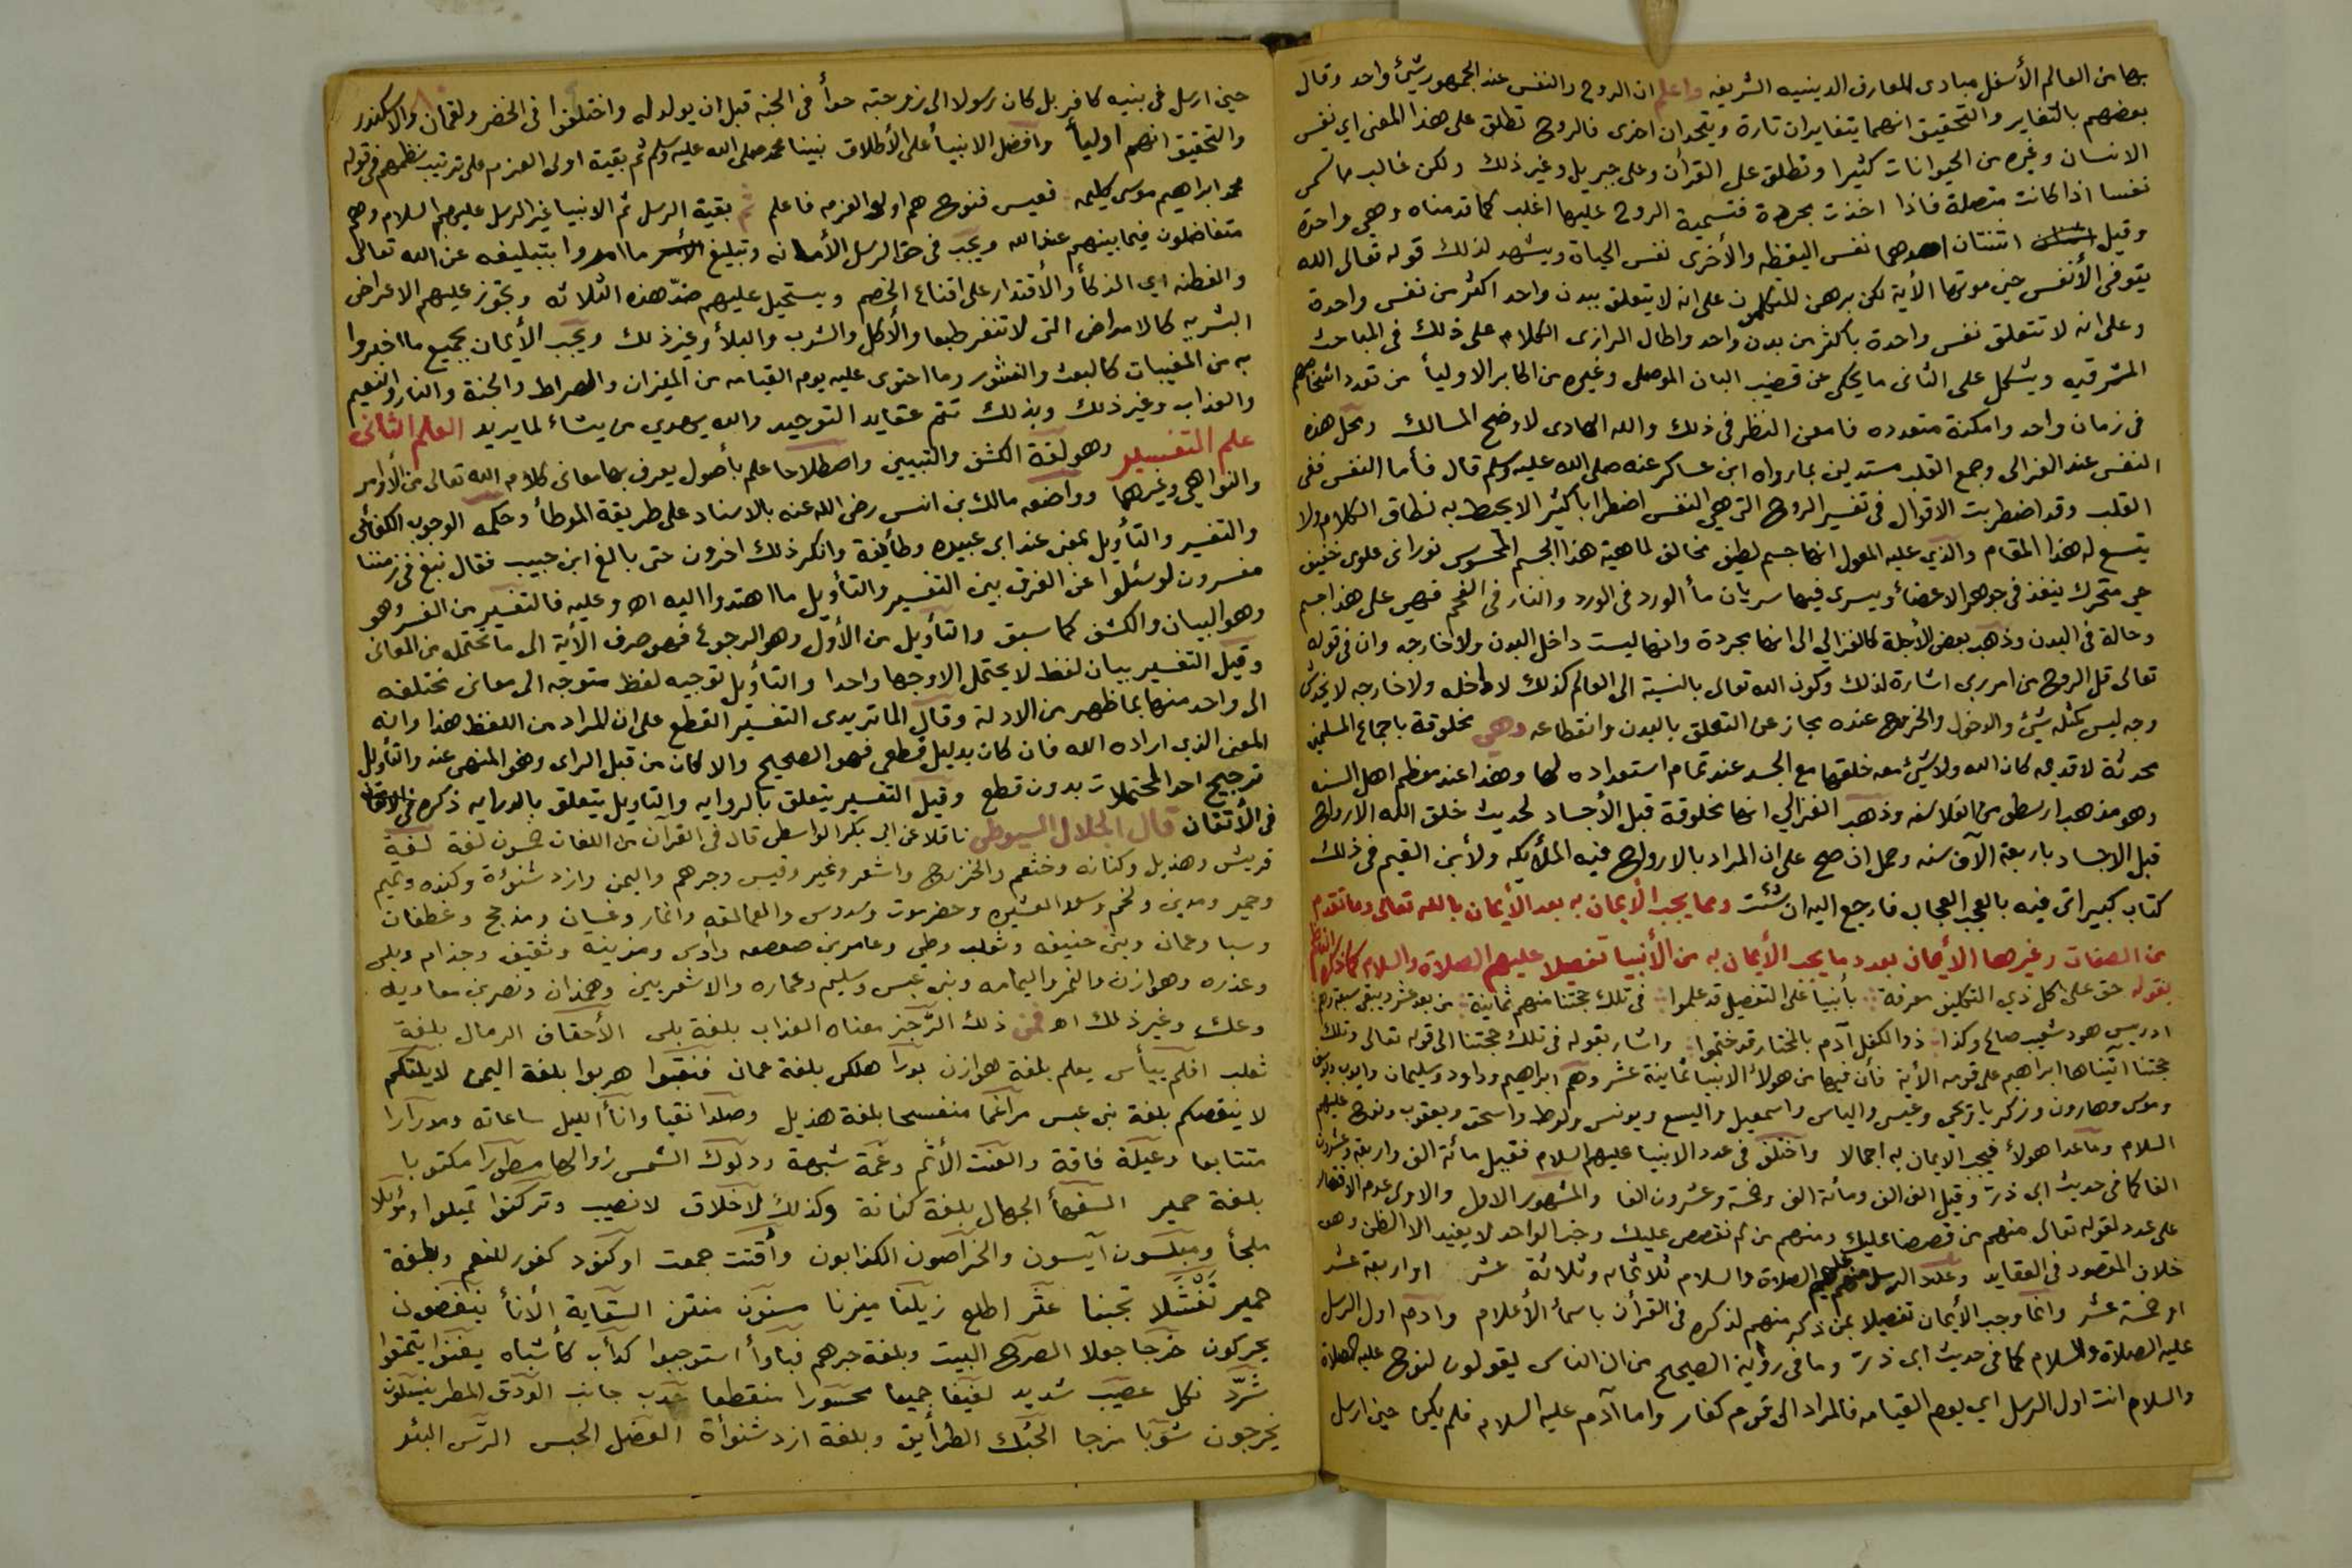 بها من العالم الأسفل مبادى للمعارف الدينيه الشريفه واعلم ان الروح والنفس عند الجمهور شيأ واحد وقال
بعضهم بالتغاير والتحقيق انهما يتغايران تارة ويتحدان اخرى فالروح تطلق على هذا المعنى اي نفس
الانسان وغيره من الحيوانات كثيرا وتطلق على القرآن وعلى جبريل وغير ذلك ولكن غالب ما تسمى
نفسا اذا كانت متصلة فاذا اخذت مجردة فتسمية الروح عليها اغلب كما قدمناه وهي واحدة
وقيل اثنتان احدهما نفس اليقظه والأخرى نفس الحياة ويشهد لذلك قوله تعالى الله
يتوفى الأنفس حين موتها الأية لكن برهن المتكلمون على انه لا يتعلق ببدن واحد اكثر من نفس واحدة
وعلى انه لا تتعلق نفس واحدة بأكثر من بدن واحد واطال الرازى الكلام على ذلك في المباحث
المشرقيه ويشكل على الثانى ما يحكى عن قضيب البان الموصلى وغيره من اكابر الاوليأ من تعدد اشخاصهم
في زمان واحد وامكنة متعدده فامعن النظر في ذلك والله الهادى لاوضح المسالك ومحل هذه
النفس عند الغزالى وجمع القلب مستدلين بما رواه ابن عساكر عنه صلى الله عليه وسلم قال فأما النفس ففى
القلب وقد اضطربت الاقوال في تفسير الروح التى هي النفس اضطرابا كثيرا لا يحيط به نطاق الكلام ولا
يتسع له هذا المقام والذي عليه المعول انها جسم لطيف مخالف لماهية هذا الجسم المحسوس نورانى علوى خفيف
حي متحرك ينفذ في جوهر الاعضأ ويسرى فيها سريان مأ الورد في الورد والنار في الفحم فهي على هذا جسم
وحالة في البدن وذهب بعض الأجلة كالغزالى الى انها مجردة وانها ليست داخل البدن ولا خارجه وان في قوله
تعالى قل الروح من امر ربى اشارة لذلك وكون الله تعالى بالنسبة الى العالم كذلك لا داخله ولا خارجه لا يخدش
وجه ليس كمثله شيئ والدخول والخروج عنده مجاز عن التعلق بالبدن وانقطاعه وهي مخلوقة باجماع المسلمين
محدثة لا قديمه كان الله ولا شيئ معه خلقها مع الجسد عند تمام استعداده لها وهذا عند معظم اهل السنه
وهو مذهب ارسطو من الفلاسفه وذهب الغزالي انها مخلوقة قبل الأجساد لحديث خلق الله الارواح
قبل الاجساد باربعة الآف سنه وحمل ان صح على ان المراد بالارواح فيه الملأيكه ولأبن القيم في ذلك
كتاب كبير اتى فيه بالعجب العجاب فارجع اليه ان شئت ومما يجب الأيمان به بعد الأيمان بالله تعالى وما تقدم
من الصفات وغيرها الأيمان بعدد ما يجب الأيمان به من الأنبيا تفصيلا عليهم الصلاة والسلام كما ذكره الناظم
بقوله حق على كل ذي التكليف معرفة بأنبيأ على التفصيل قد علموا في تلك حجتنا منهم ثمانية من بعد عشر ويبقى سبعة وهم
ادريس هود شعيب صالح وكذا ذو الكفل آدم بالمختار قد ختموا واشار بقوله في تلك حجتنا الى قوله تعالى وتلك
حجتنا آتيناها ابراهيم على قومه الأية فأن فيها من هولأ الأنبيأ ثمانية عشر وهم ابراهيم وداود وسليمان وايوب ويوسف
وموسى وهارون وزكريا ويحي وعيسى والياس واسمعيل واليسع ويونس ولوط واسحق ويعقوب ونوح عليهم
السلام وما عدا هولأ فيجب الايمان به اجمالا واختلف في عدد الانبيا عليهم السلام فقيل مائة الف واربعة وعشرون
الفا كما في حديث ابى ذر وقيل الف الف ومائة الف وخمسة وعشرون الفا والمشهور الاول والاولى عدم الاقتصار
على عدد لقوله تعالى منهم من قصصنا عليك ومنهم من لم نقصص عليك وخبر الواحد لا يفيد الا الظن وهو
خلاف المقصود في العقايد وعدد الرسل منهم عليهم الصلاة والسلام ثلاثمائه وثلاثة عشر او اربعة عشر
او خمسة عشر وانما وجب الأيمان تفصيلا بمن ذكر منهم لذكره في القرآن باسمأ الأعلام وآدم اول الرسل
عليه الصلاة والسلام كما في حديث ابى ذر وما في رواية الصحيح من ان الناس يقولون لنوح عليه الصلاة
والسلام انت اول الرسل اي يوم القيامه فالمراد الى قوم كفار واما آدم عليه السلام فلم يكن حين ارسل
حين ارسل في بنيه كافر بل كان رسولا الى زوجته حوأ في الجنه قبل ان يولد له واختلفوا في الخضر ولقمان والاسكندر
والتحقيق انهم اوليأ وافضل الانبيأ على الأطلاق نبينا محمد صلى الله عليه وسلم ثم بقية اولى العزم على ترتيب نظمهم في قوله
محمد ابراهيم موسى كليمه فعيسى فنوح هم اولو العزم فاعلم ثم بقية الرسل ثم الانبيا غير الرسل عليهم السلام وهم
متفاضلون فيما بينهم عند الله ويجب في حق الرسل الأمانه وتبليغ ما امروا بتبليغه عن الله تعالى
والفطنه اي الذكأ والأقتدار على اقناع الخصم ويستحيل عليهم ضد هذه الثلاثه وتجوز عليهم الاعراض
البشريه كالامراض التى لا تنفر طبعا والأكل والشرب والبلأ وغير ذلك ويجب الأيمان بجميع ما اخبروا
به من المغيبات كالبعث والنشور وما احتوى عليه يوم القيامه من الميزان والصراط والجنة والنار والنعيم
والعذاب وغير ذلك وبذلك تتم عقايد التوحيد والله يهدي من يشاء لما يريد العلم الثانى
علم التفسير وهو لغة الكشف والتبيين واصطلاحا علم بأصول يعرف بها معانى كلام الله تعالى من الأوامر
والنواهي وغيرهما وواضعه مالك بن انس رضى الله عنه بالاسناد على طريقة الموطأ وحكمه الوجوب الكفائى
والتفسير والتأويل بمعنى عند ابى عبيده وطأيفة وانكر ذلك اخرون حتى بالغ ابن حبيب فقال نبغ في زمننا
مفسرون لو سئلوا عن الفرق بين التفسير والتأويل ما اهتدوا اليه اه وعليه فالتفسير من الفسر وهو
وهو البيان والكشف كما سبق والتأويل من الأول وهو الرجوع فهو صرف الأية الى ما تحتمله من المعانى
وقيل التفسير بيان لفظ لا يحتمل الا وجها واحدا والتأويل توجيه لفظ متوجه الى معانى مختلفه
الى واحد منها بما ظهر من الادلة وقال الماتريدى التفسير القطع على ان المراد من اللفظ هذا وانه
المعنى الذي اراده الله فان كان بدليل قطعى فهو الصحيح والا كان من قبل الراى وهو المنهى عنه والتأويل
ترجيح احد المحتملات بدون قطع وقيل التفسير يتعلق بالروايه والتاويل يتعلق بالدرايه ذكره
في الأتقان قال الجلال السيوطى ناقلا عن ابى بكر الواسطى قال في القرآن من اللغات خمسون لغة لغة
قريش وهذيل وكنانه وخثعم والخزرج واشعر ونمير وقيس وجرهم واليمن وازد شنؤة وكنده وتميم
وحمير ومدين ولخم وسعد العشيره وحضرموت وسدوس والعمالقه وانمار وغسان ومذحج وغطفان
وسبا وعمان وبنى حنيفه وثعلب وطى وعامر بن صعصعه واوس ومزينة وثقيف وجذام وبلى
وعذره وهوازن والنمر واليمامه وبنى عبس وسليم وعماره والاشعريين وهمذان ونصر بن معاويه
وعك وغير ذلك اه فمن ذلك الرجز معناه العذاب بلغة بلى الأحقاف الرمال بلغة
ثعلب افلم ييأس يعلم بلغة هوازن بورا هلكى بلغة عمان فنقبوا هربوا بلغة اليمن لا يلتكم
لا ينقصكم بلغة بنى عبس مراغما منفسحا بلغة هذيل وصلدا نقيا وانأ الليل ساعاته ومدرارا
متتابعا وعيلة فاقة والعنت الأثم وغمة شبهة ودلوك الشمس زوالها مسطورا مكتوبا
بلغة حمير السفهأ الجهال بلغة كنانة وكذلك لاخلاق لا نصيب وتركنوا تميلوا وموئلا
ملجأ ومبلسون آيسون والخراصون الكذابون وأقتت جمعت او كنود كفور للنعم وبلغة
حمير تفشلا تجبنا عثر اطلع زيلنا ميزنا مسنون منتن السقاية الأنأ ينغضون
يحركون خرجا جعلا الصرح البيت وبلغة جرهم فبأوأ استوجبوا كدأب كأشباه يغنوا يتمتعوا
شرد نكل عصيب شديد لفيفا جميعا محسورا منقطعا حدب جانب الودق المطر ينسلون
يخرجون شوبا مزجا الحبك الطرأيق وبلغة ازد شنوأة العضل الحبس الرس البئر